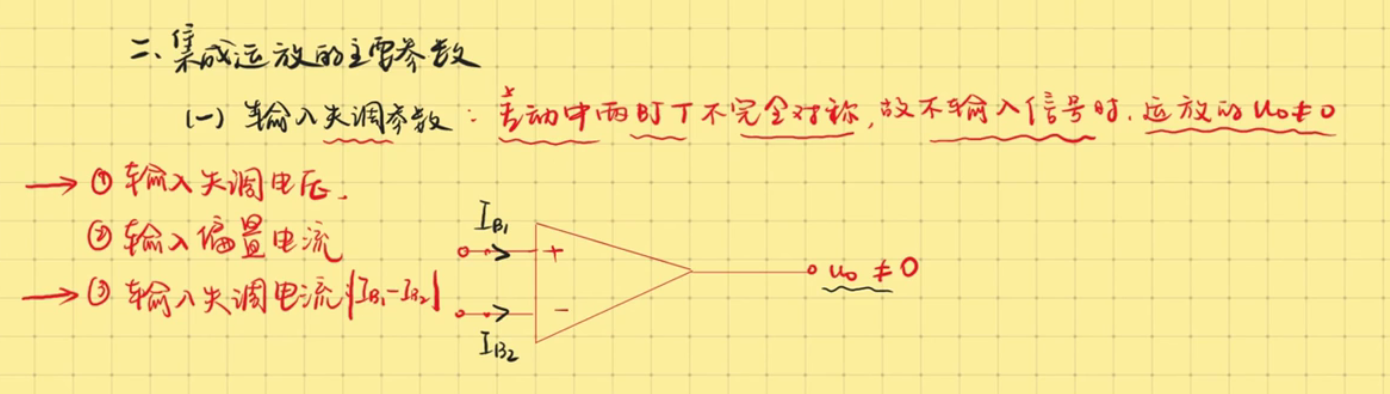 二、集成运放的主要参数
(一) 输入失调参数：差动中两时T不完全对称,故不输入信号时.运放的u₀≠0
→ ① 输入失调电压.
② 输入偏置电流
→ ③ 输入失调电流|I_B1-I_B2|
I_B1
+
u₀ ≠ 0
-
I_B2